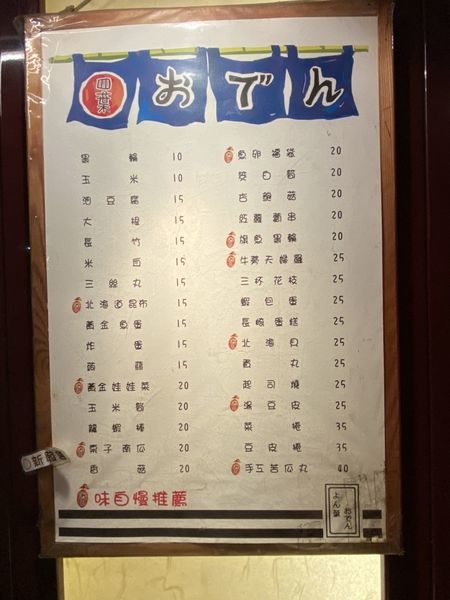 おでん
黑輪 10
玉米 10
油豆腐 15
大根 15
長竹 15
米血 15
三絲丸 15
北海道昆布 15
黃金魚蛋 15
炸蛋 15
蒟蒻 15
黃金娃娃菜 20
玉米筍 20
龍蝦棒 20
栗子南瓜 20
香菇 20
魚卵福袋 20
茭白筍 20
杏鮑菇 20
紅蘿蔔串 20
旗魚黑輪 20
牛蒡天婦羅 25
三杯花枝 25
蝦包蛋 25
長崎蛋糕 25
北海貝 25
貢丸 25
起司燒 25
湯豆皮 25
菜捲 35
豆皮捲 35
手工苦瓜丸 40
味自慢推薦
おでん